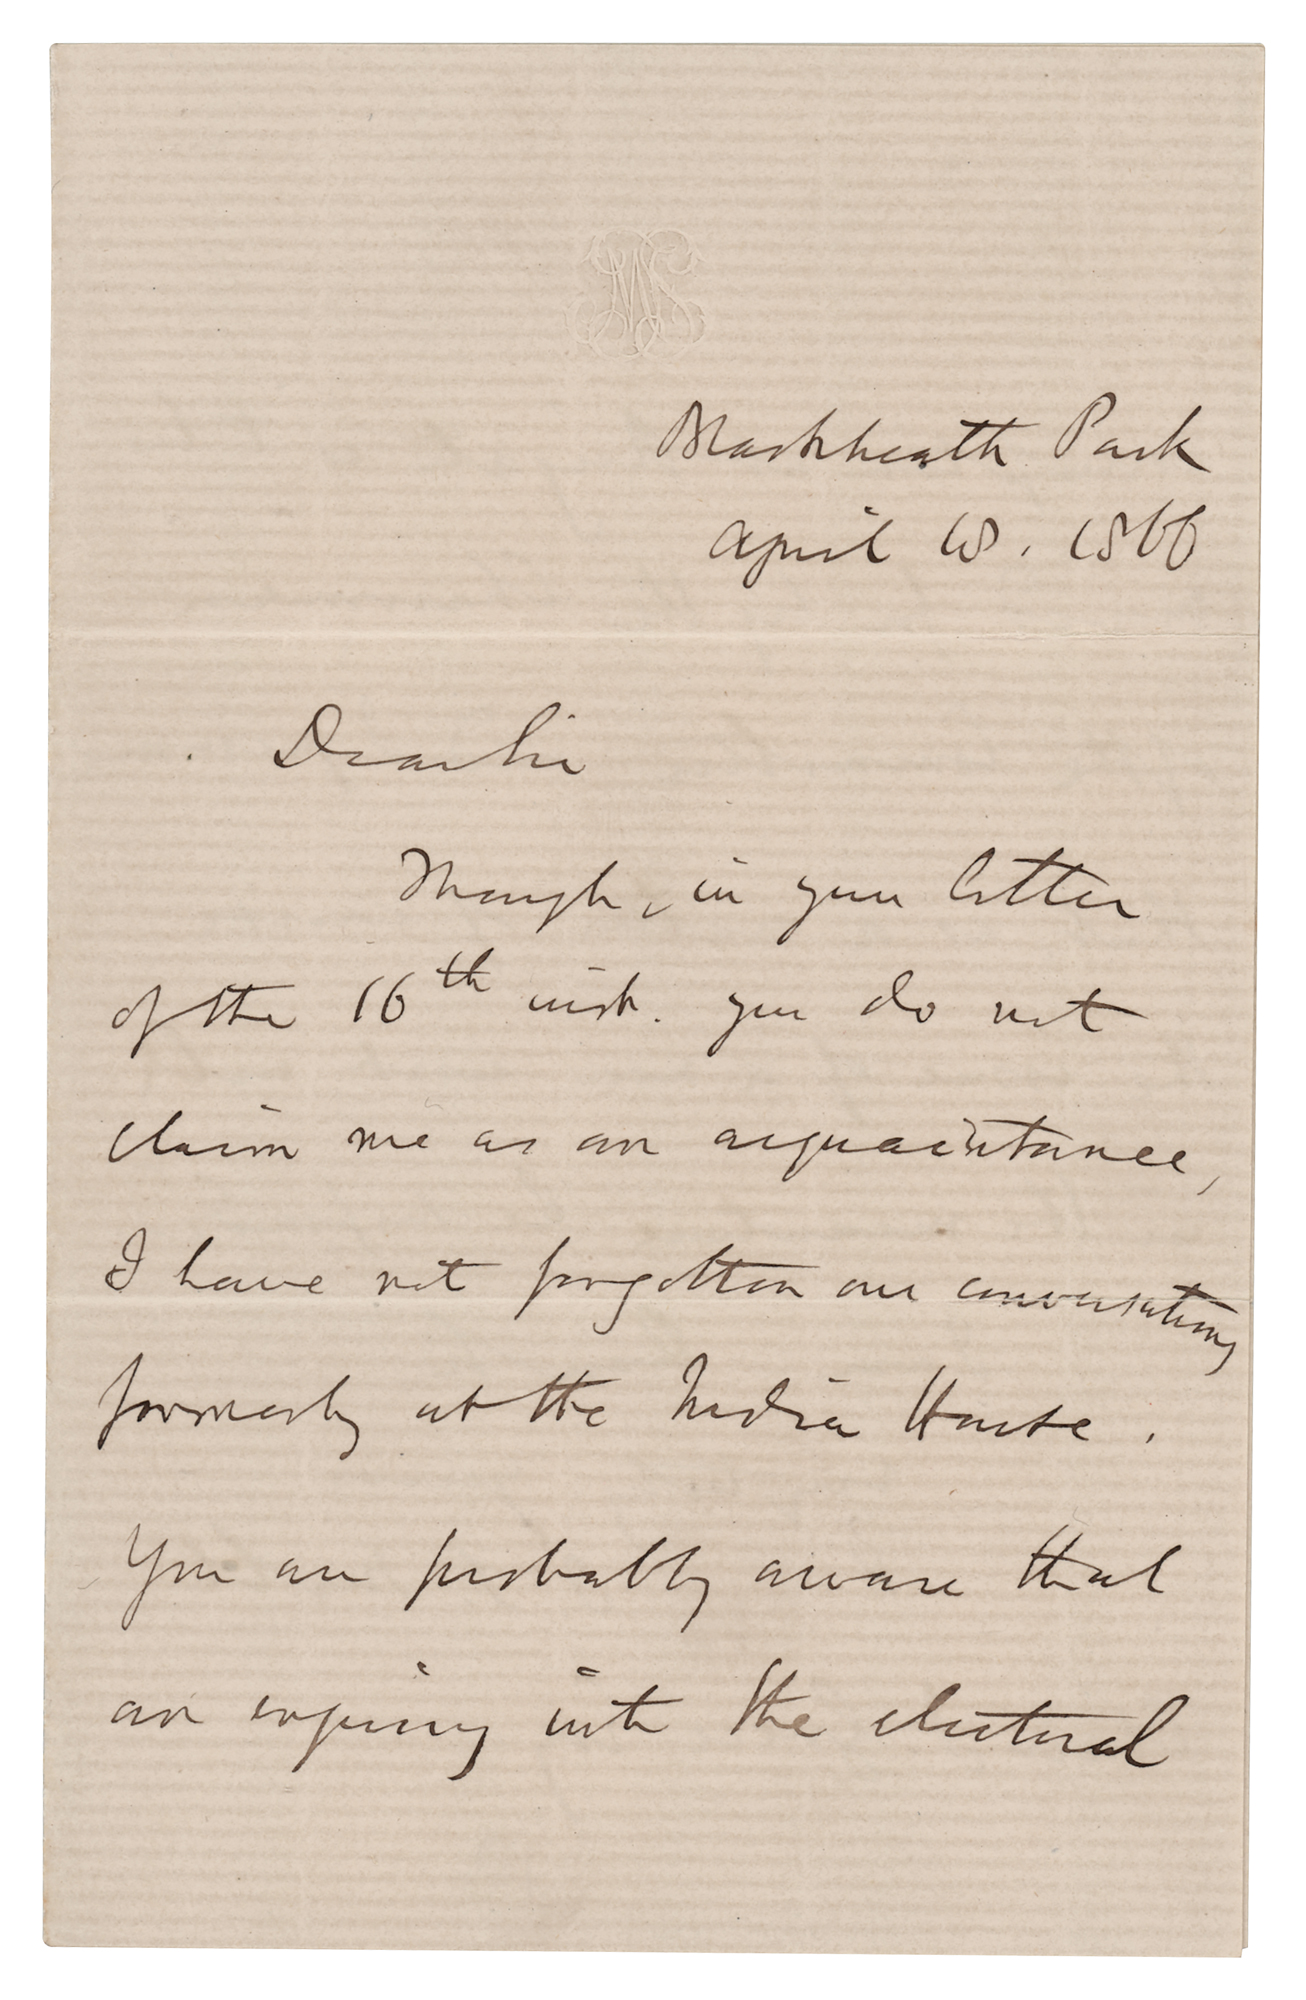 Blackheath Park
April 18. 1866
Dear Sir
Though, in your letter
of the 16th inst. you do not
claim me as an acquaintance,
I have not forgotten our conversations
formerly at the India House.
You are probably aware that
an inquiry into the electoral